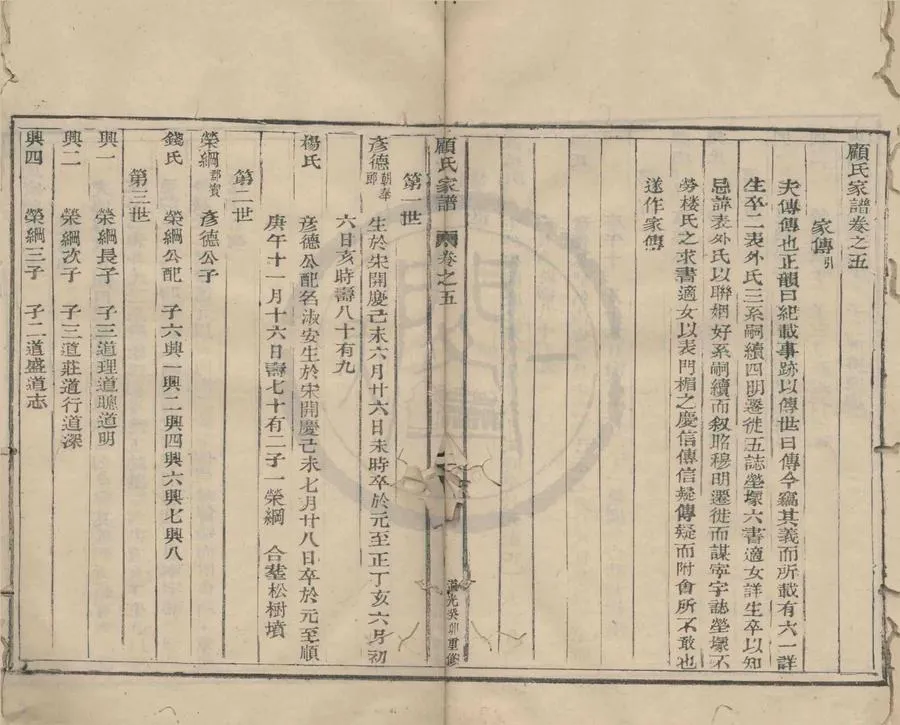 顧氏家譜卷之五
家傳引
夫傳傳也正韻曰紀載事跡以傳世曰傳今竊其義而所載有六一詳
生卒二表外氏三系嗣續四明遷徙五誌塋塚六書適女詳生卒以知
忌諱表外氏以聯姻好系嗣續而叙昭穆明遷徙而謀寧宇誌塋塚不
勞樵氏之求書適女以表門楣之慶信傳信疑傳疑而附會所不敢也
遂作家傳
顧氏家譜 卷之五 道光癸卯重修
第一世
彥德朝奉郎 生於宋開慶己未六月廿六日未時卒於元至正丁亥六月初
六日亥時壽八十有九
楊氏 彥德公配名淑安生於宋開慶己未七月廿八日卒於元至順
庚午十一月十六日壽七十有二子一榮綱 合塟松樹墳
第二世
榮綱郡賓 彥德公子
錢氏 榮綱公配 子六興一興二興四興六興七興八
第三世
興一 榮綱長子 子三道理道聰道明
興二 榮綱次子 子三道莊道行道深
興四 榮綱三子 子二道盛道志